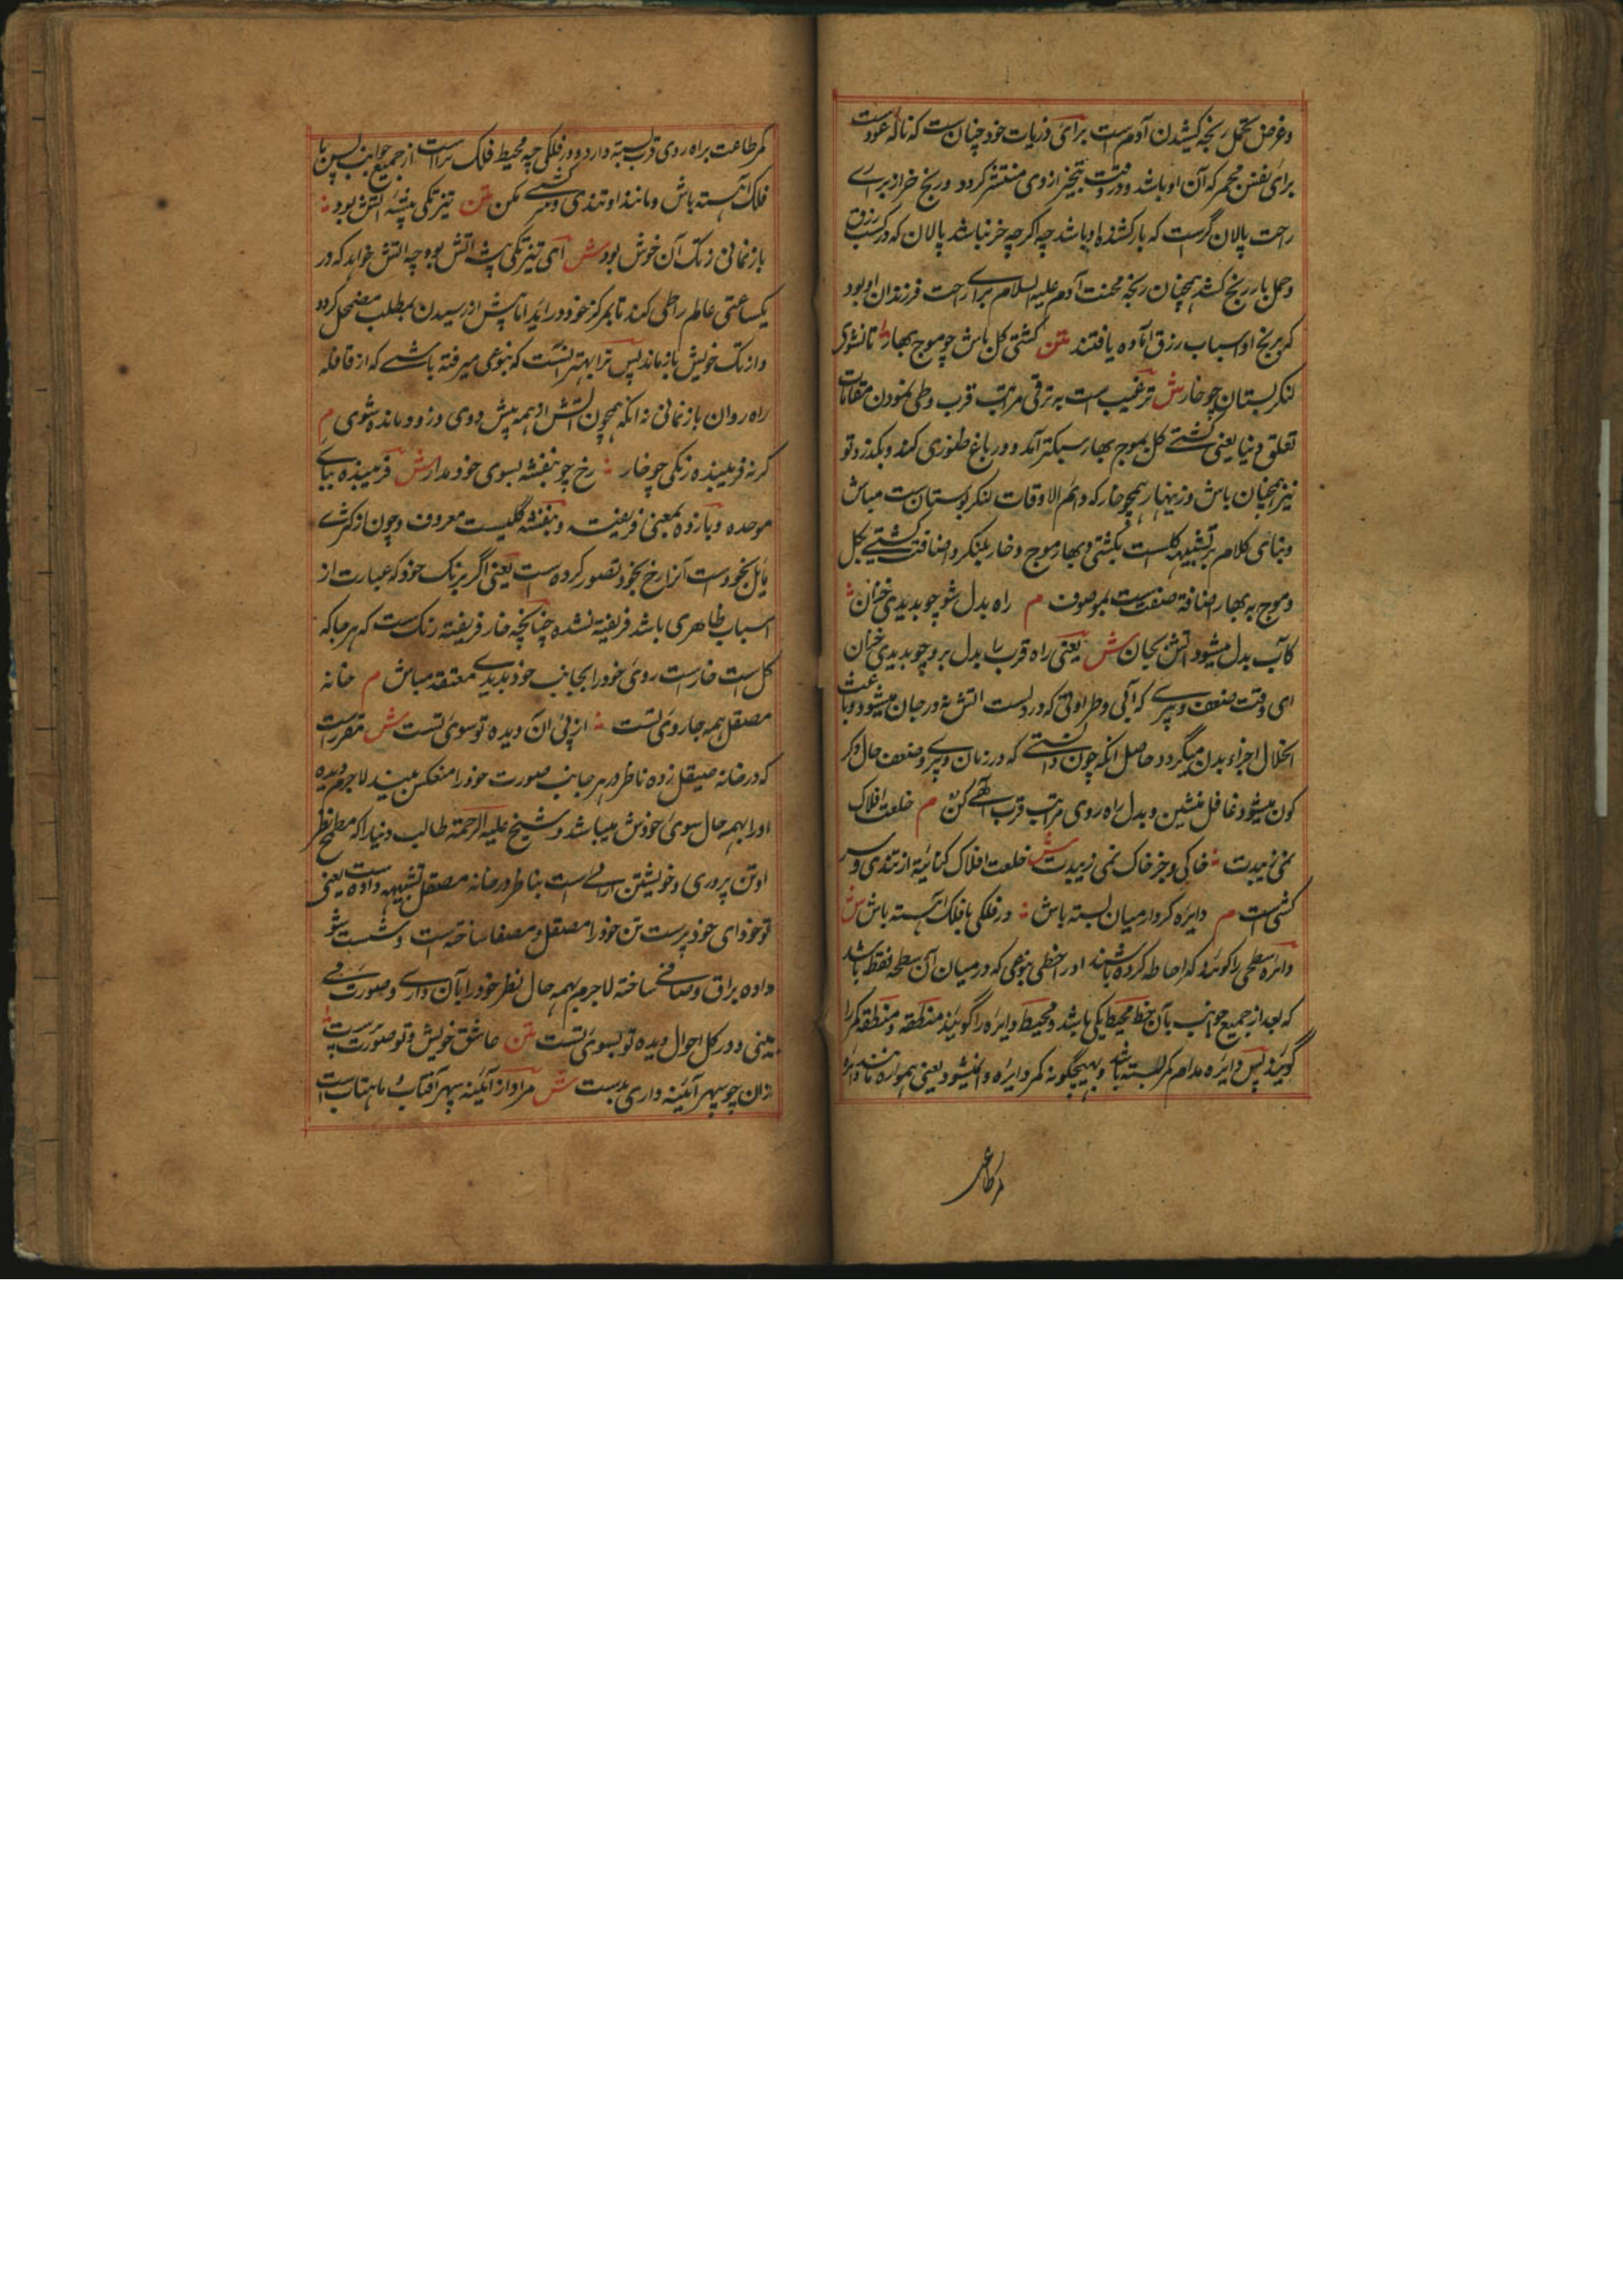 وغرض تحمل رنجه کشیدن آدم ست برای ذریات خود چنان ست که ناله عود ست
برای نفس مجمر که آن او باشد و در وقت تبخیر از وی منتشر کردد و رنج خر از برای
راحت پالان گرست که بارکشنده او باشد چه اکرچه خر نباشد پالان که در کسب رزق
و حمل بار رنج کشد همچنان رنجه محنت آدم علیه السلام برای راحت فرزندان او بود
که برنج او اسباب رزق آماده یافتند متن کشتی کل باش چو موج بهار تا نشوی
لنکر بستان چو خار ش ترغیب ست به ترقی مراتب قرب و طی نمودن مقامات
تعلق دنیا یعنی کشتی کل بموج بهار سبکتر آمد و در باغ طنوری کند و بکذرد تو
نیز همچنان باش و زینهار همچو خار که دائم الاوقات لنکر بوستان ست مباش
و بنای کلام بر تشبیه کل ست بکشتی و بهار موج و خار بلنکر و اضافت کشتی بکل
و موج به بهار اضافة صفت ست بموصوف م راه بدل شو چو بدیدی خزان
کاب بدل میشود آتش بجان ش یعنی راه قرب را بدل برو چو بدیدی خزان
ای وقت ضعف و پیری که آبی و طراوتی که در دلست آتش شده در جان میشود و باعث
انحلال اجزاء بدن میگردد حاصل آنکه چون دانستی که در زمان پیری و ضعف حال دکر
کون میشود غافل منشین و بدل راه روی مراتب قرب آلهی کن م خلعت افلاک
نمی زیبدت خاکی و جز خاک نمی زیبدت ش خلعت افلاک کنایة از تندی و سر
کشی است م دایره کردار میان بسته باش در فلکی با فلک آهسته باش ش
دائره سطحی را کویند که احاطه کرده باشند او را خطی بنوعی که در میان آن سطحه نقطه باشد
که بعد از جمیع جوانب بآن خط محیط یکی باشد و محیط دایره را گویند منطقه و منطقه کمر را
گویند پس دایره مدام کمر بسته باشد و بهیچگونه کمر دایره وا نمیشود یعنی همواره مانند دائره
کمر طاعت
کمر طاعت براه روی قرب بسته دار و در فلکی چه محیط فلک تراست از جمیع جوانب پس با
فلک آهسته باش و مانند او تندی و سرکشی مکن متن تیز تکی پیشه آتش بود
باز نمانی ز تک آن خوش بود ش ای تیز تکی پیشه آتش بود چه آتش خواهد که در
یکساعتی عالم را طی کند تا بمرکز خود در آید اما پیش از رسیدن بمطلب مضمحل کردد
و از تک خویش باز ماند پس ترا بهتر آنست که بنوعی میرفته باشی که از قافله
راه روان باز نمانی نه آنکه همچون آتش از همه پیش دوی و زود مانده شوی م
کرنه فریبنده رنکی چو خار رخ چو بنفشه بسوی خود مدار ش فریبنده ببای
موحده و بازده بمعنی فریفته و بنفشه گلیست معروف و چون از کثری
مایل بخودست آنرا رخ بخود تصور کرده است یعنی اگر برنک خود که عبارت از
اسباب ظاهری باشد فریفته نشده چنانچه خار فریفته رنک ست که هر جا که
کل ست خارست روی خود را بجانب خود بدیدی معتقد مباش م خانه
مصقل همه جا روی تست از پی آن دیده تو سوی تست ش مقررست
که در خانه صیقل زده ناظر در هر جانب صورت خود را منعکس می بیند لاجرم دیده
او را بهمه حال سوی خودش میباشد و شیخ علیه الرحمة طالب دنیا را که مطمح نظر
او تن پروری و خویشتن آرائی است بناظر در خانه مصقل تشبیه داده است یعنی
تو خود ای خود پرست تن خود را مصقل و مصفا ساخته است و شست شو
داده براق و صافی ساخته لاجرم بهمه حال نظر خود را بآن داری و صورت
می بینی و در کل احوال دیده تو بسوی تست متن عاشق خویش و تو صورت پرست
زان چو سپهر آئینه داری بدست ش مراد از آئینه سپهر آفتاب و ماهتاب است